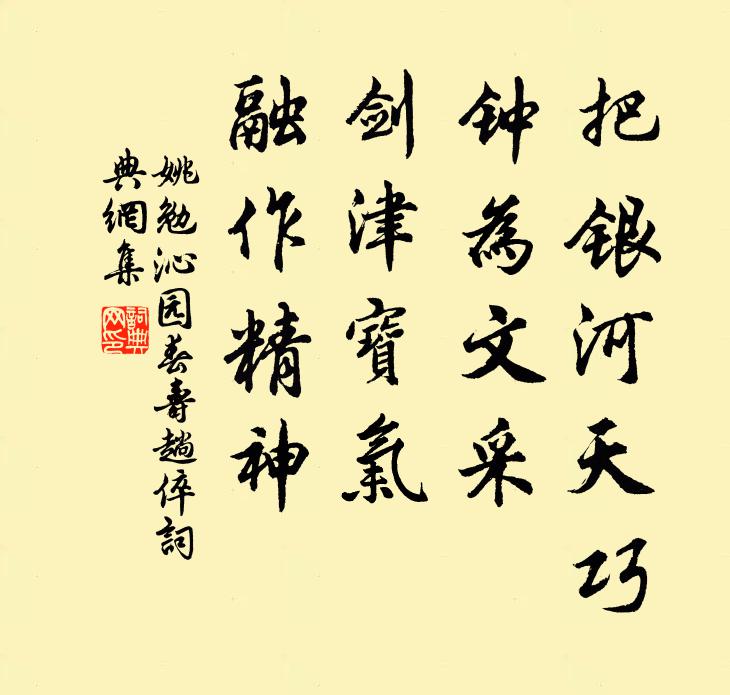 把银河天巧
钟為文采
剑津寶氣
融作精神
姚勉沁园春壽趙倅詞
典網集
詞典
网印